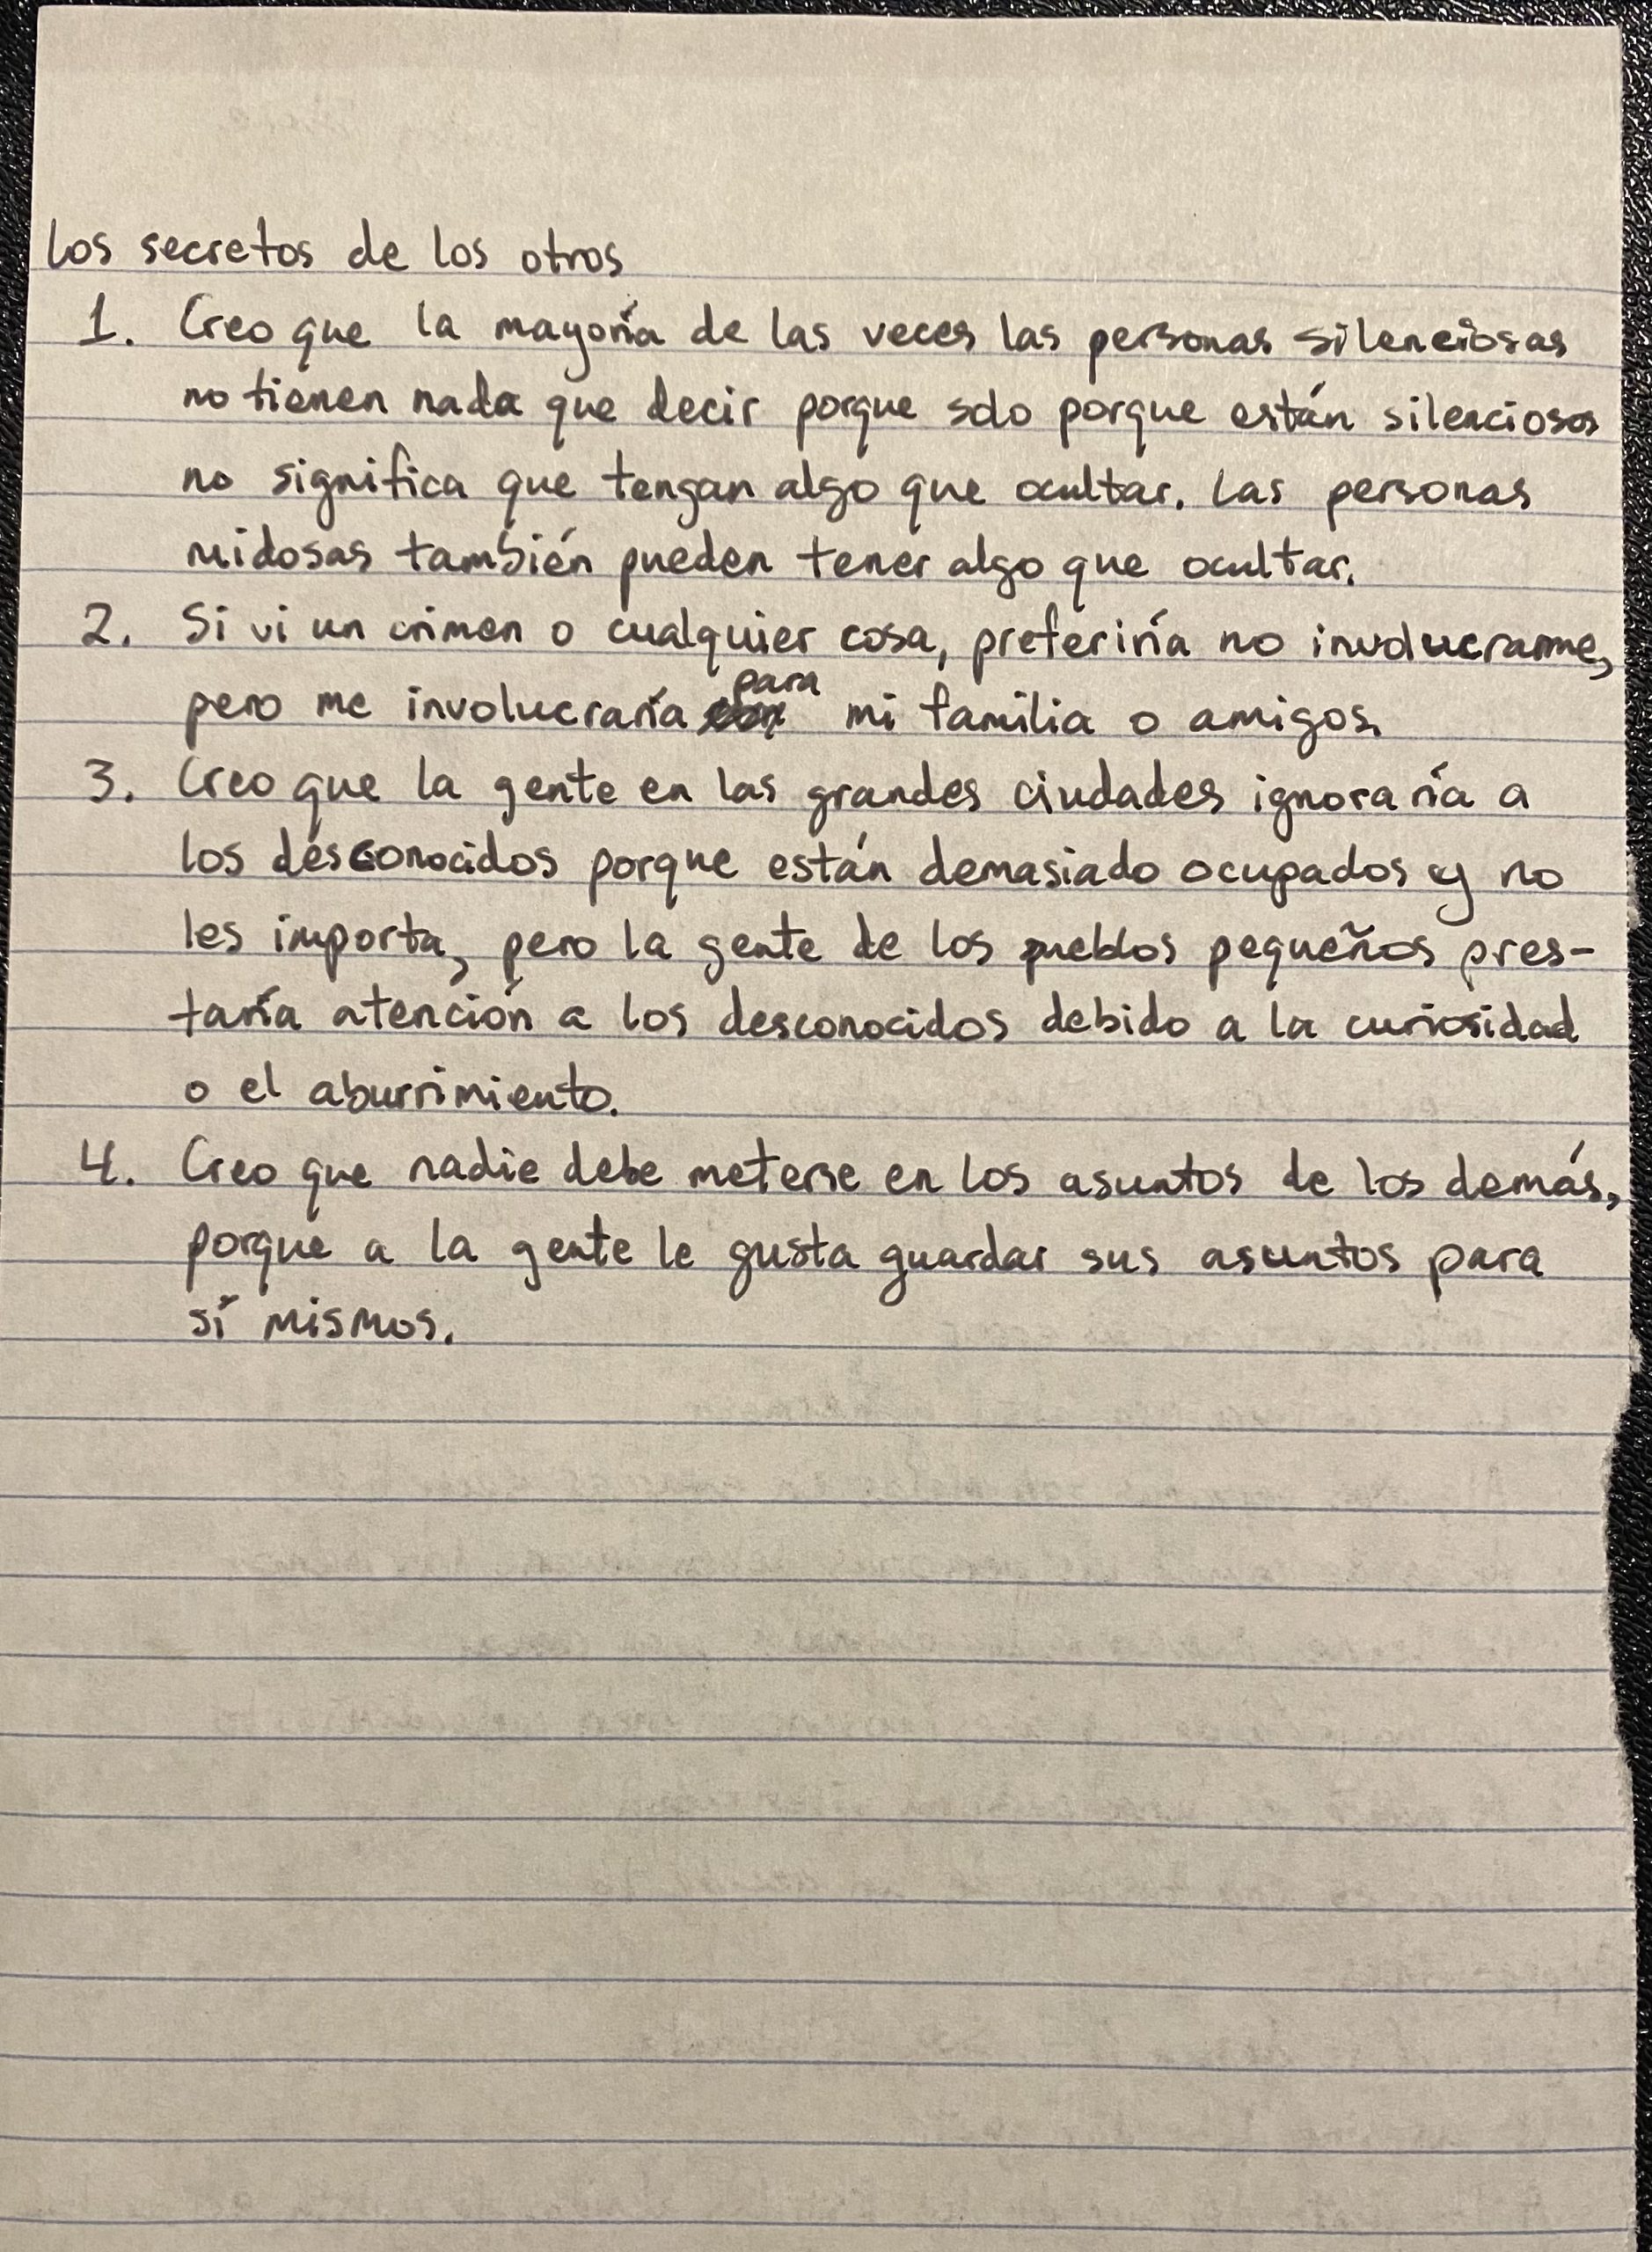 Los secretos de los otros
1. Creo que la mayoría de las veces las personas silenciosas
no tienen nada que decir porque solo porque están silenciosos
no significa que tengan algo que ocultar. Las personas
ruidosas también pueden tener algo que ocultar.
2. Si vi un crimen o cualquier cosa, preferiría no involucrarme,
pero me involucraría para mi familia o amigos.
3. Creo que la gente en las grandes ciudades ignoraría a
los desconocidos porque están demasiado ocupados y no
les importa, pero la gente de los pueblos pequeños pres-
taría atención a los desconocidos debido a la curiosidad
o el aburrimiento.
4. Creo que nadie debe meterse en los asuntos de los demás,
porque a la gente le gusta guardar sus asuntos para
sí mismos.